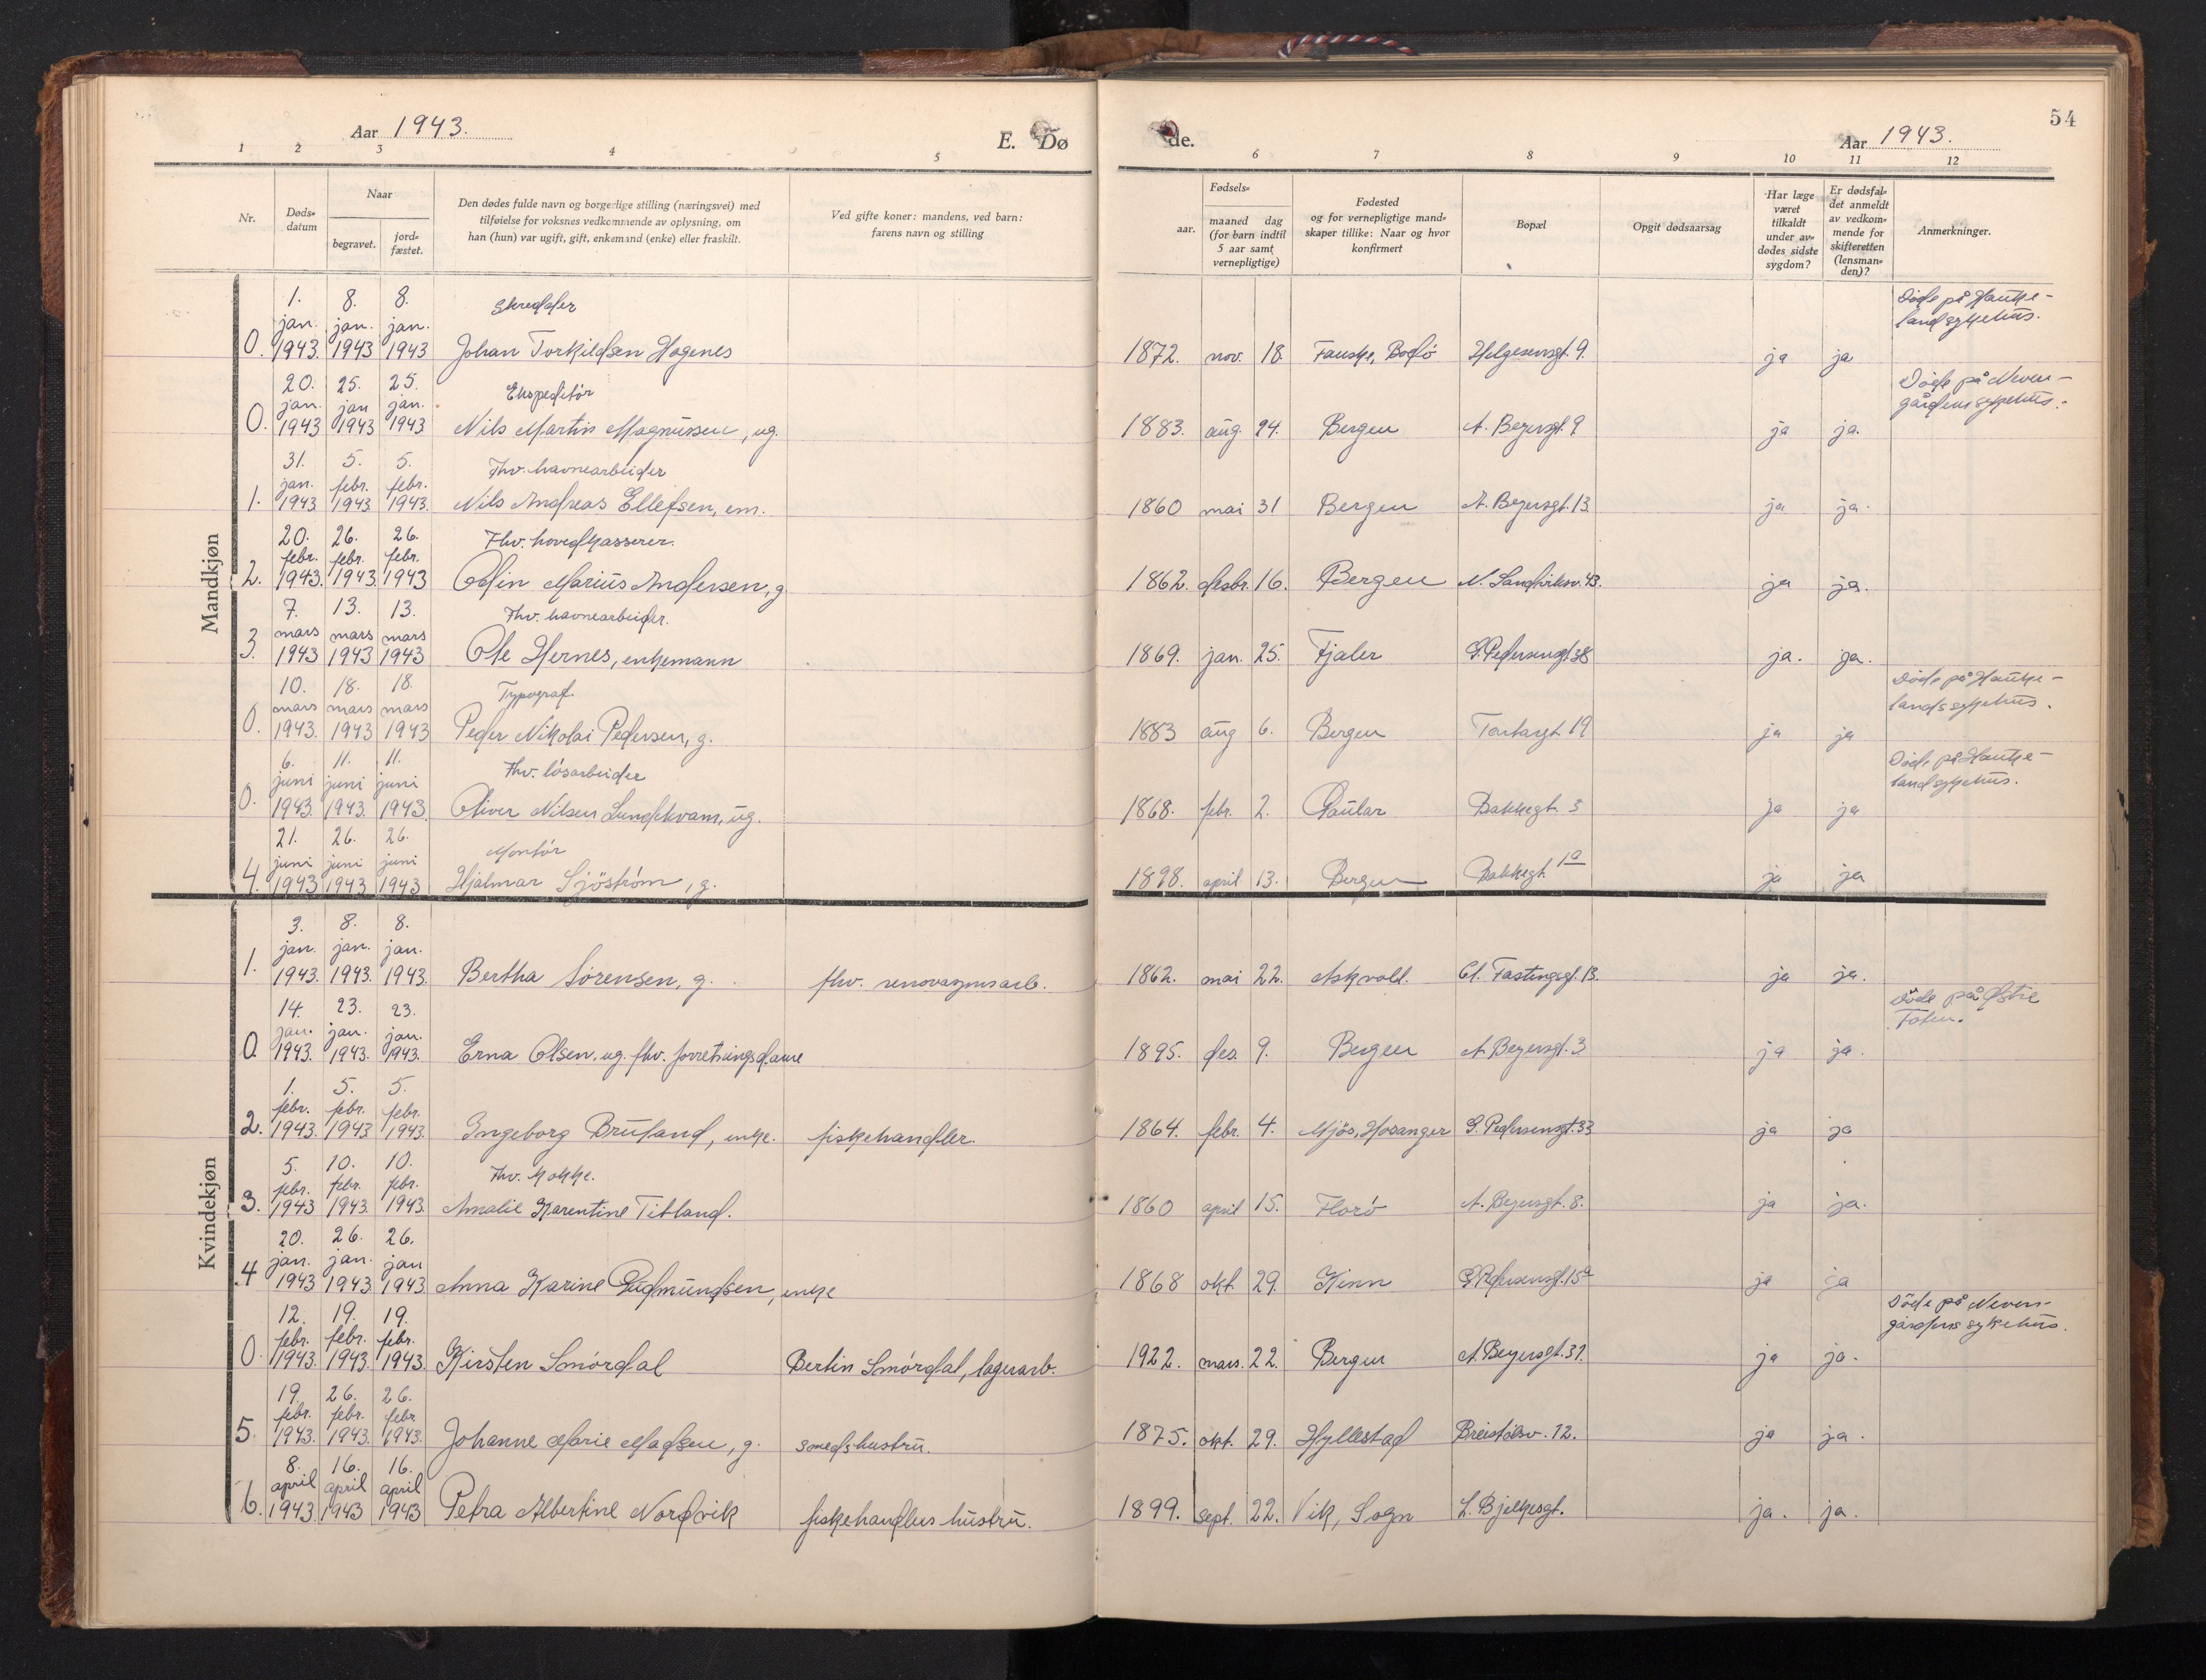 Aar 1943.
E. Dø
de.
Aar 1943.
54
1 2 3 4 5
6 7 8 9 10 11 12
Nr.
Døds-
datum
Naar
begravet.
jord-
fæstet.
Den dødes fulde navn og borgerlige stilling (næringsvei) med
tilføielse for voksnes vedkommende av oplysning, om
han (hun) var ugift, gift, enkemand (enke) eller fraskilt.
Ved gifte koner: mandens, ved barn:
farens navn og stilling
Fødsels-
aar.
maaned dag
(for barn indtil
5 aar samt
vernepligtige)
Fødested
og for vernepligtige mand-
skaper tillike: Naar og hvor
konfirmert
Bopæl
Opgit dødsaarsag
Har læge
været
tilkaldt
under av-
dødes sidste
sygdom?
Er dødsfal-
det anmeldt
av vedkom-
mende for
skifteretten
(lensman-
den)?
Anmerkninger.
Mandkjøn
1. 8. 8. Skredder Døde på Hauke-
jan. jan. jan. landsykehus.
0. 1943. 1943 1943 Johan Torkildsen Hogenes 1872. nov. 18 Fauske, Bodø Helgesensgt. 9. ja ja
20. 25. 25. Ekspeditør Døde på Neven-
jan. jan jan. gårdens sykehus.
0. 1943 1943 1943 Nils Martin Magnussen, ug. 1883. aug. 24. Bergen A. Beyersgt. 9 ja ja.
31. 5. 5. Fhv. havnearbeider
jan. febr. febr.
1. 1943 1943 1943. Nils Andreas Ellefsen, em. 1860 mai 31 Bergen A. Beyersgt. 13 ja ja.
20. 26. 26. Fhv. hovedkasserer.
febr. febr. febr.
2. 1943. 1943. 1943 Odin Marius Andersen, g. 1862. desbr. 16. Bergen N. Sandviksv. 43. ja ja.
7. 13. 13. Fhv. havnearbeider.
mars mars mars
3. 1943 1943 1943 Ole Hernes, enkemann 1869. jan. 25. Fjaler G. Pedersensgt. 38 ja. ja.
10. 18. 18. Typograf. Døde på Hauke-
mars mars mars landssykehus.
0. 1943. 1943 1943 Peder Nikolai Pedersen, g. 1883 aug 6. Bergen 19 ja ja
6. 11. 11. Fhv. løsarbeider Døde på Hauke-
juni juni juni landsykehus.
0. 1943. 1943. 1943. Oliver Nilsen Lundekvam, ug. 1868. febr. 2. Gaular Bakkegt. 3 ja ja
21. 26. 26. Montør
juni juni juni
4. 1943 1943 1943 Hjalmar Sjöström, g. 1898. april 13. Bergen Bakkegt. 1a ja ja
Kvindekjøn
3. 8. 8.
jan. jan. jan.
1. 1943. 1943. 1943. Bertha Sørensen, g. fhv. renovasjonsarb. 1862. mai 22. Askvoll. Cl. Fastingsgt. 13. ja ja.
14. 23. 23. Døde på Østre
jan. jan. jan. Toten.
0. 1943. 1943. 1943. Erna Olsen, ug. fhv. forretningsdame 1895. des. 9. Bergen A Beyersgt. 3 ja ja.
1. 5. 5.
febr. febr. febr.
2. 1943. 1943 1943. Ingeborg Bruland, enke. fiskehandler. 1864. febr. 4. Mjøs, Hosanger G. Pedersensgt. 33 ja ja
5. 10. 10. Fhv. kokke.
febr. febr. febr.
3. 1943 1943. 1943. Amalie Karentine Titland. 1860 april 15. Florø A. Beyersgt. 8. ja ja.
20. 26. 26.
jan. jan. jan
4 1943 1943. 1943 Anna Karine Gudmundsen, enke 1868 okt. 29. Kinn G Pedersensgt. 15a ja ja
12. 19. 19. Døde på Neven-
febr. febr. febr. gårdens sykehus.
0. 1943. 1943. 1943. Kirsten Smørdal Bertin Smørdal, lagerarb. 1922. mars. 22. Bergen A. Beyersgt. 37. ja ja.
19. 26. 26.
febr. febr. febr
5. 1943. 1943. 1943. Johanne Marie Madsen, g. smedshustru. 1875. okt. 29. Hyllestad Breistølsv. 12. ja ja.
8. 16. 16.
april april april
6. 1943. 1943 1943 Petra Albertine Nordvik fiskehandlers hustru. 1899. sept. 22. Vik, Sogn L. Bjelkesgt. ja. ja.